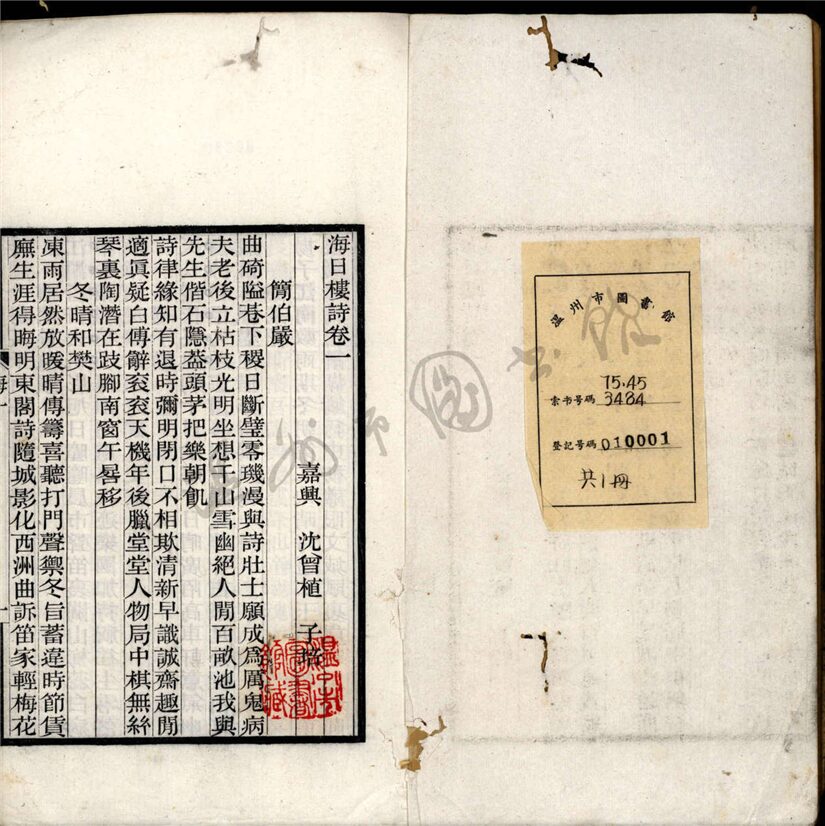 温州市圖書館
75.45
索书号碼 3484
登記号碼 010001
共1冊
海日樓詩卷一
嘉興 沈曾植 子培
簡伯嚴
曲碕隘巷下稷日斷璧零璣漫與詩壯士願成爲厲鬼病
夫老後立枯枝光明坐想千山雪幽絕人閒百畝池我與
先生偕石隱葢頭茅把樂朝飢
詩律緣知有退時彌明閉口不相欺清新早讖誠齋趣閒
適眞疑白傅辭袞袞天機年後臘堂堂人物局中棋無絲
琴裏陶潛在跂腳南窗午晷移
冬晴和樊山
凍雨居然放暖晴傳籌喜聽打門聲禦冬旨蓄違時節賃
廡生涯得晦明東閣詩隨城影化西洲曲訴笛家輕梅花
海一
一
温州市圖書館藏
温州市圖書館